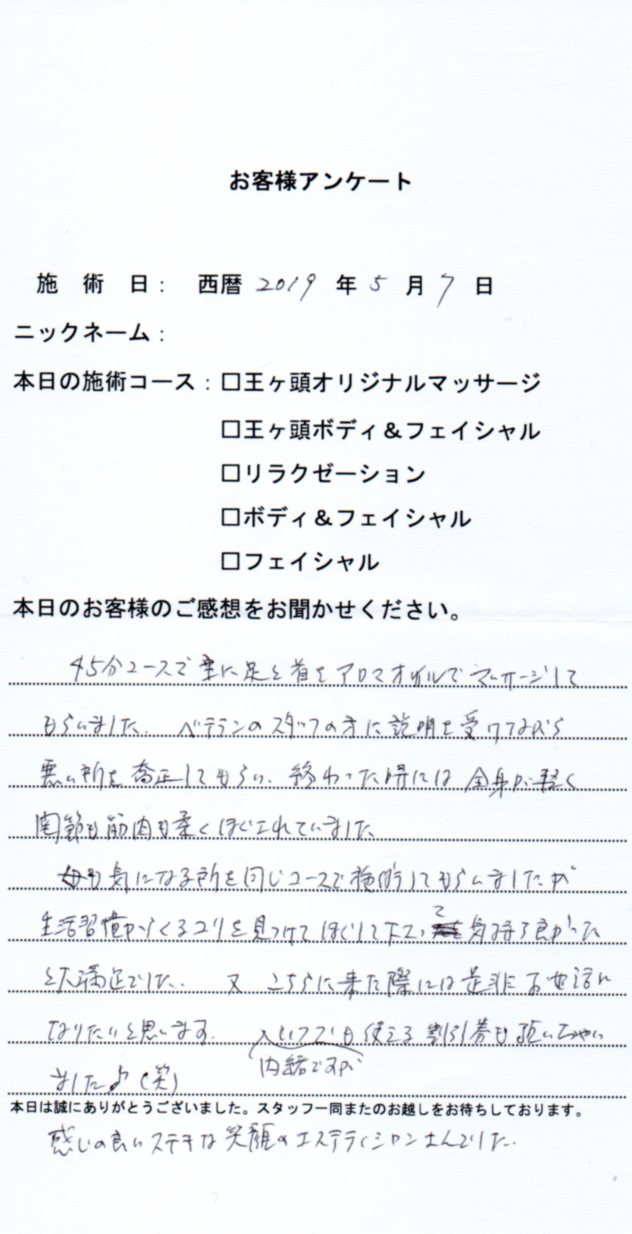 お客様アンケート
施 術 日： 西暦 2019 年 5 月 7 日
ニックネーム：
本日の施術コース：□王ヶ頭オリジナルマッサージ
□王ヶ頭ボディ＆フェイシャル
□リラクゼーション
□ボディ＆フェイシャル
□フェイシャル
本日のお客様のご感想をお聞かせください。
45分コースで 重に足と首をアロマオイルでマッサージして
もらいました。 ベテランのスタッフの方に説明を受けてながら
悪い所を矯正してもらい、終わった時には 全身が軽く
関節も筋肉も柔くほぐされていました
母も気になる所を同じコースで施術してもらいましたが
生活習慣からくるコリを見つけてほぐして下さって 気持ち良かった
と大満足でした。 又 こちらに来た際には是非 お世話に
なりたいと思います。 いつでも使える割引券も頂いちゃい
内緒ですが
ました♪(笑)
本日は誠にありがとうございました。スタッフ一同またのお越しをお待ちしております。
感じの良いステキな笑顔のエステティシャンさんでした。